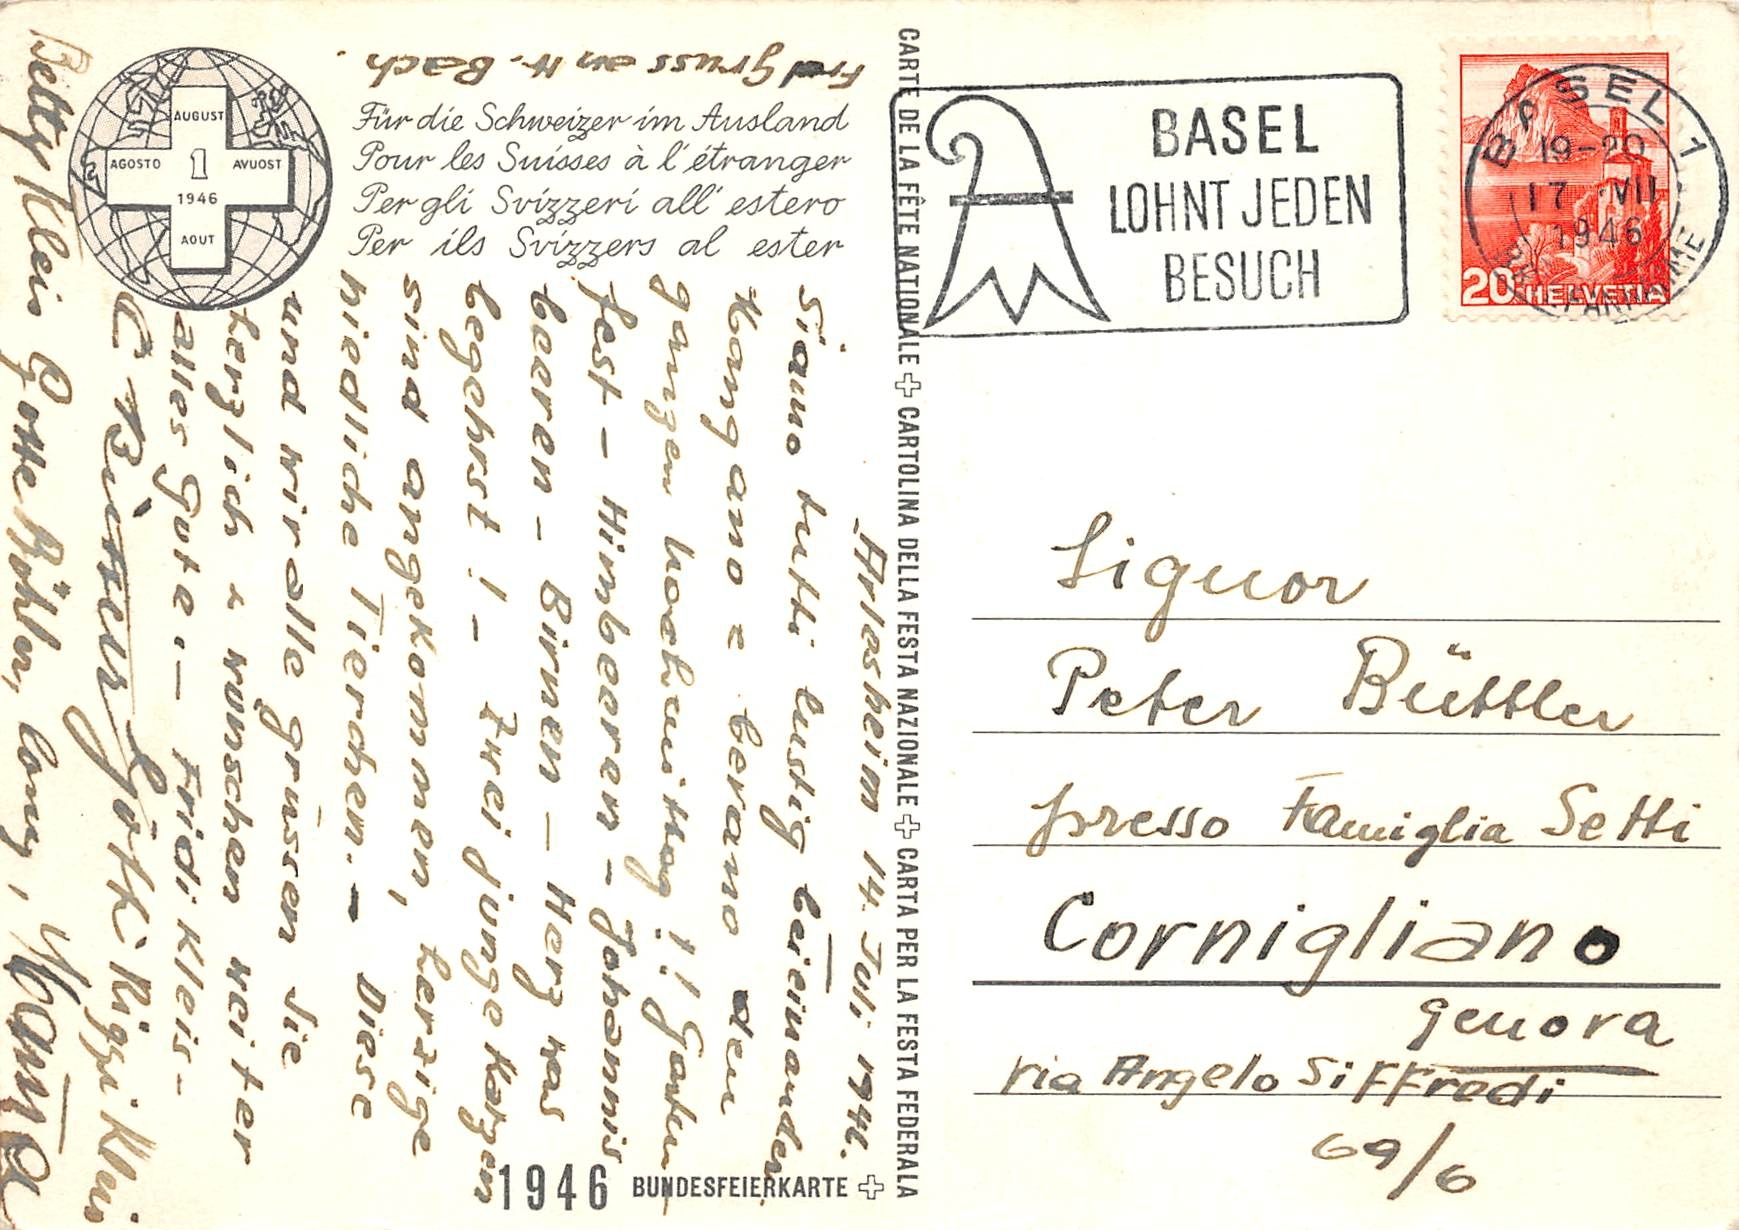 Frdl gruss an H. Bach.
AUGUST
AGOSTO 1 AVUOST
1946
AOUT
Für die Schweizer im Ausland
Pour les Suisses à l'étranger
Per gli Svizzeri all' estero
Per ils Svizzers al ester
Arlesheim 14. Juli 1946.
Siamo tutti lustig beieinander
Mangano e bevano den
ganzen Nachmittag!! Garten
fest - Himbeeren - Johannis
beeren - Birnen - Herz was
begehrst! - Zwei junge Katzen
sind angekommen, herzige
niedliche Tierchen. - Diese
und wir alle grüssen Sie
herzlich & wünschen weiter
alles Gute. - Fridi Kleis-
Götti Riggi Klein
Betty Klein Gotte Böhler, Mama
1946 BUNDESFEIERKARTE
CARTE DE LA FÊTE NATIONALE CARTOLINA DELLA FESTA NAZIONALE CARTA PER LA FESTA FEDERALA
BASEL
LOHNT JEDEN
BESUCH
BASEL 1
19-20
17 VII
1946
20 HELVETIA
Signor
Peter Büttler
presso Famiglia Setti
Cornigliano
Genova
via Angelo Siffredi
69/6